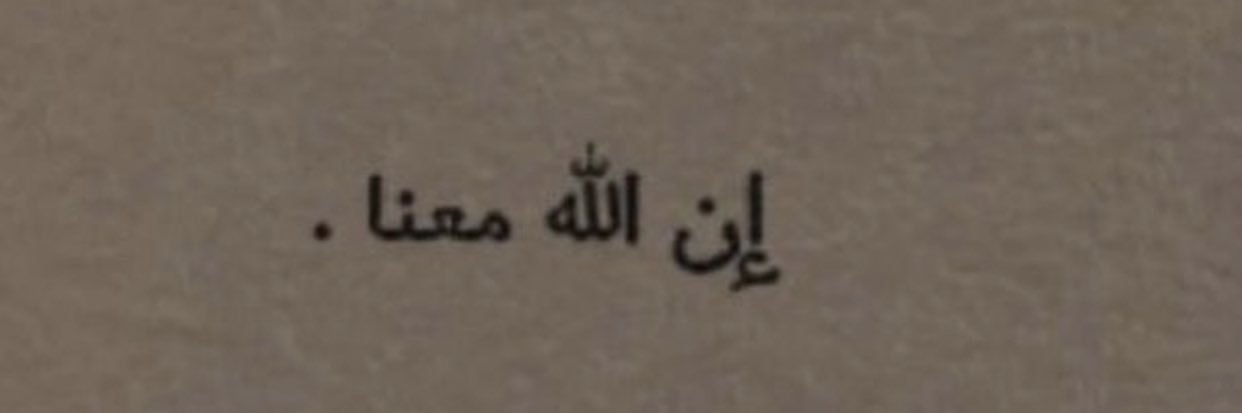 إن الله معنا .